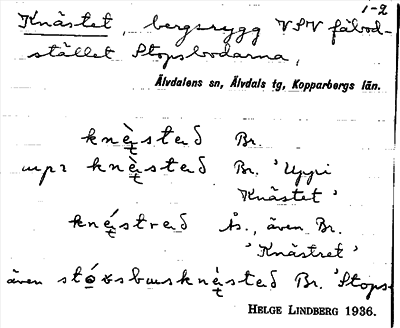 1-2
Knästet, bergsrygg VSV fäbod-
stället Stopsbodarna,
Älvdalens sn, Älvdals tg, Kopparbergs län.
knæ̀stað Br.
upı knæ̀stað Br. 'Uppi
Knästet'
knǽstrað Ås., även Br.
'Knästret'
även Br. 'Stops-
HELGE LINDBERG 1936.